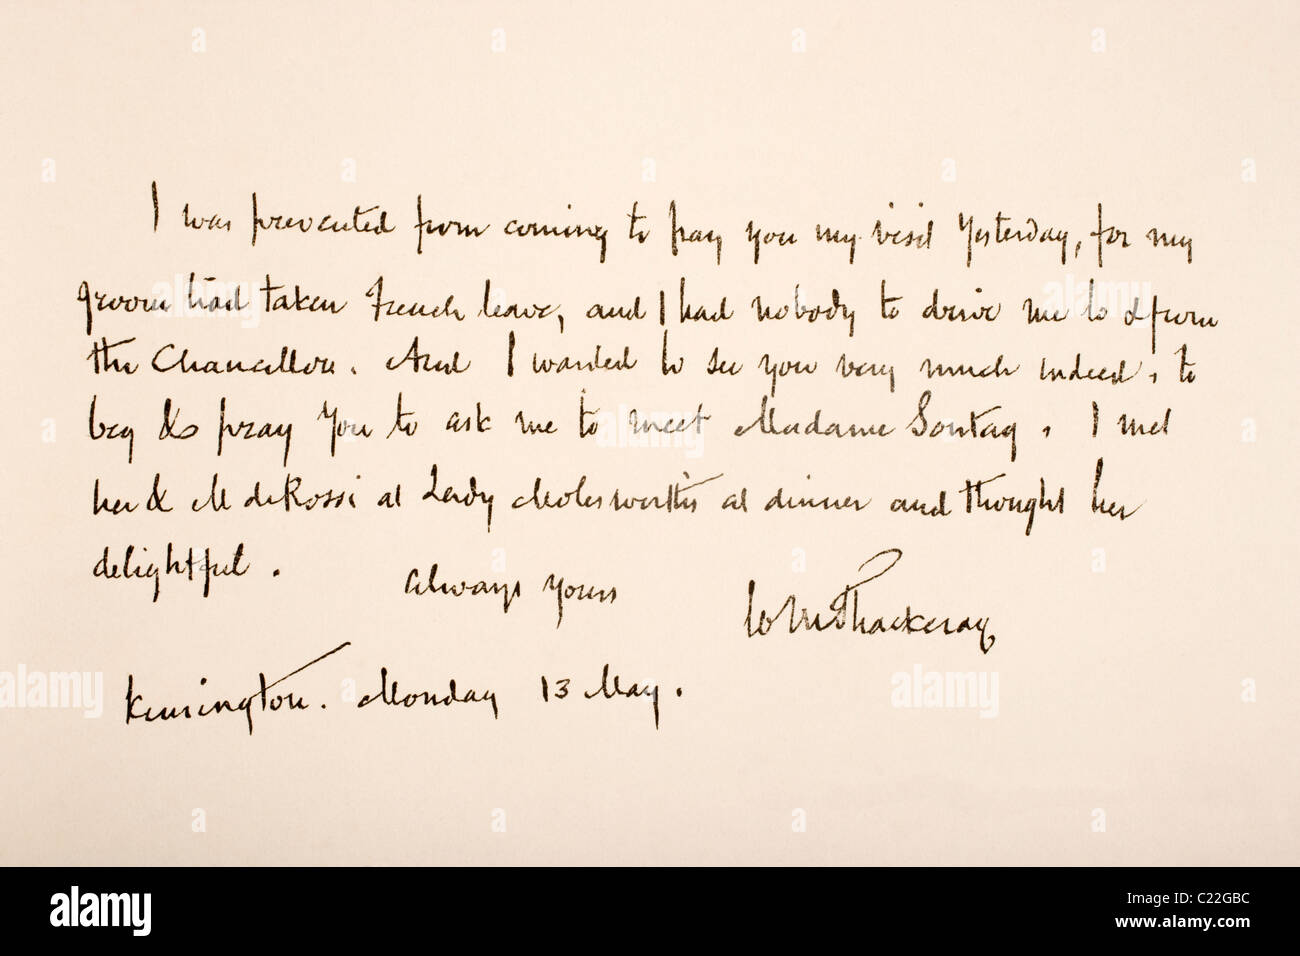 I was prevented from coming to pay you my visit Yesterday, for my
groom had taken French leave, and I had nobody to drive me to & from
the Chancellor. And I wanted to see you very much indeed, to
beg & pray You to ask me to meet Madame Sontag. I met
her & M de Rossi at Lady Molesworth's at dinner and thought her
delightful.
Always yours
W M Thackeray
Kensington. Monday 13 May.
alamy
Image ID: C22GBC
www.alamy.com